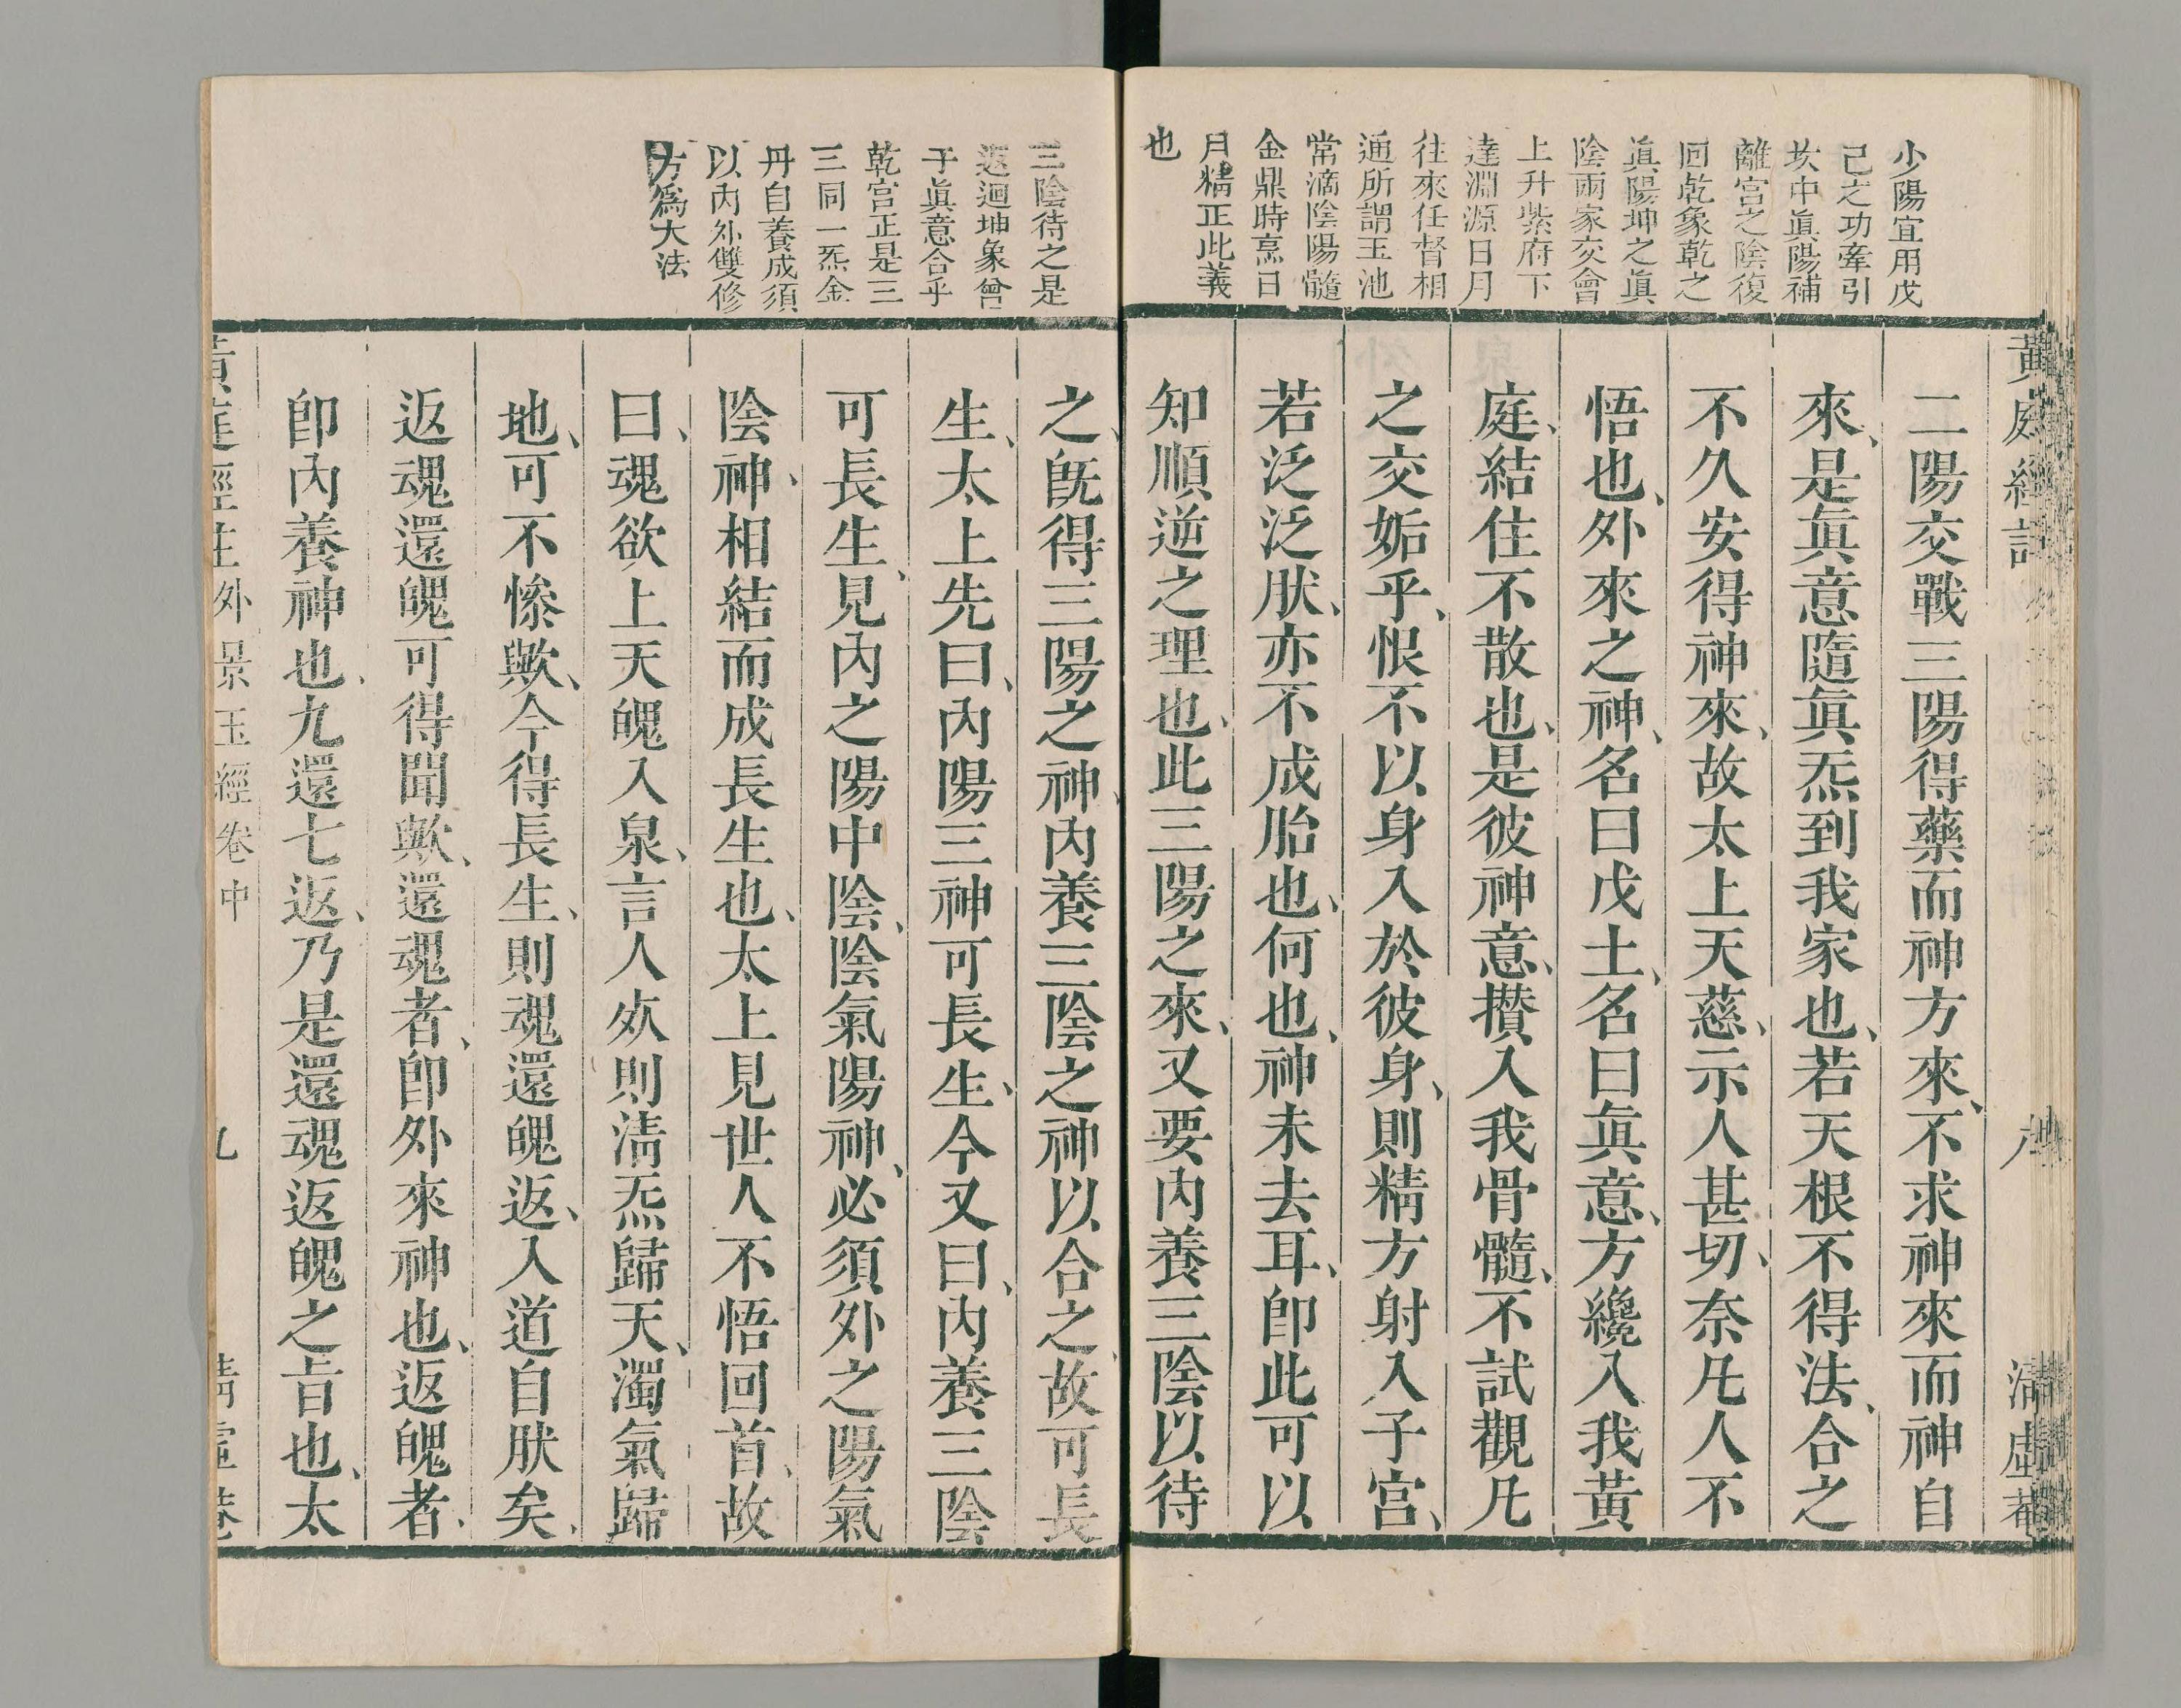 少陽宜用戊
己之功牽引
坎中眞陽補
離宮之陰復
回乾象乾之
眞陽坤之眞
陰兩家交會
上升紫府下
達淵源日月
往來任督相
通所謂玉池
常滴陰陽髓
金鼎時烹日
月精正此義
也
黃庭經註
八
清虛菴
二陽交戰三陽得藥而神方來、不求神來而神自
來、是眞意隨眞炁到我家也、若天根不得法、合之
不久安得神來、故太上天慈、示人甚切、奈凡人不
悟也、外來之神、名曰戊土、名曰眞意、方纔入我黃
庭、結住不散也、是彼神意、攢入我骨髓、不試觀凡
之交姤乎、恨不以身入於彼身、則精方射入子宮、
若泛泛肰、亦不成胎也、何也、神未去耳、卽此可以
知順逆之理也、此三陽之來、又要內養三陰以待
三陰待之是
返迴坤象曾
于眞意合乎
乾宮正是三
三同一炁金
丹自養成須
以內外雙修
方爲大法
之、旣得三陽之神、內養三陰之神以合之、故可長
生、太上先曰、內陽三神可長生、今又曰、內養三陰
可長生、見內之陽中陰、陰氣陽神、必須外之陽氣
陰神、相結而成長生也、太上見世人不悟回首、故
曰、魂欲上天魄入泉、言人㱙則清炁歸天、濁氣歸
地、可不慘歟、今得長生、則魂還魄返、入道自肰矣、
返魂還魄可得聞歟、還魂者、卽外來神也、返魄者、
卽內養神也、九還七返、乃是還魂返魄之旨也、太
黃庭經註外景玉經卷中
九
清虛菴